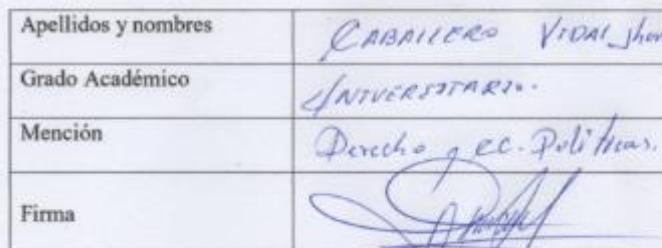 Apellidos y nombres CABALLERO VIDAL Jhon
Grado Académico UNIVERSITARIO.
Mención Derecho y CC. Políticas.
Firma